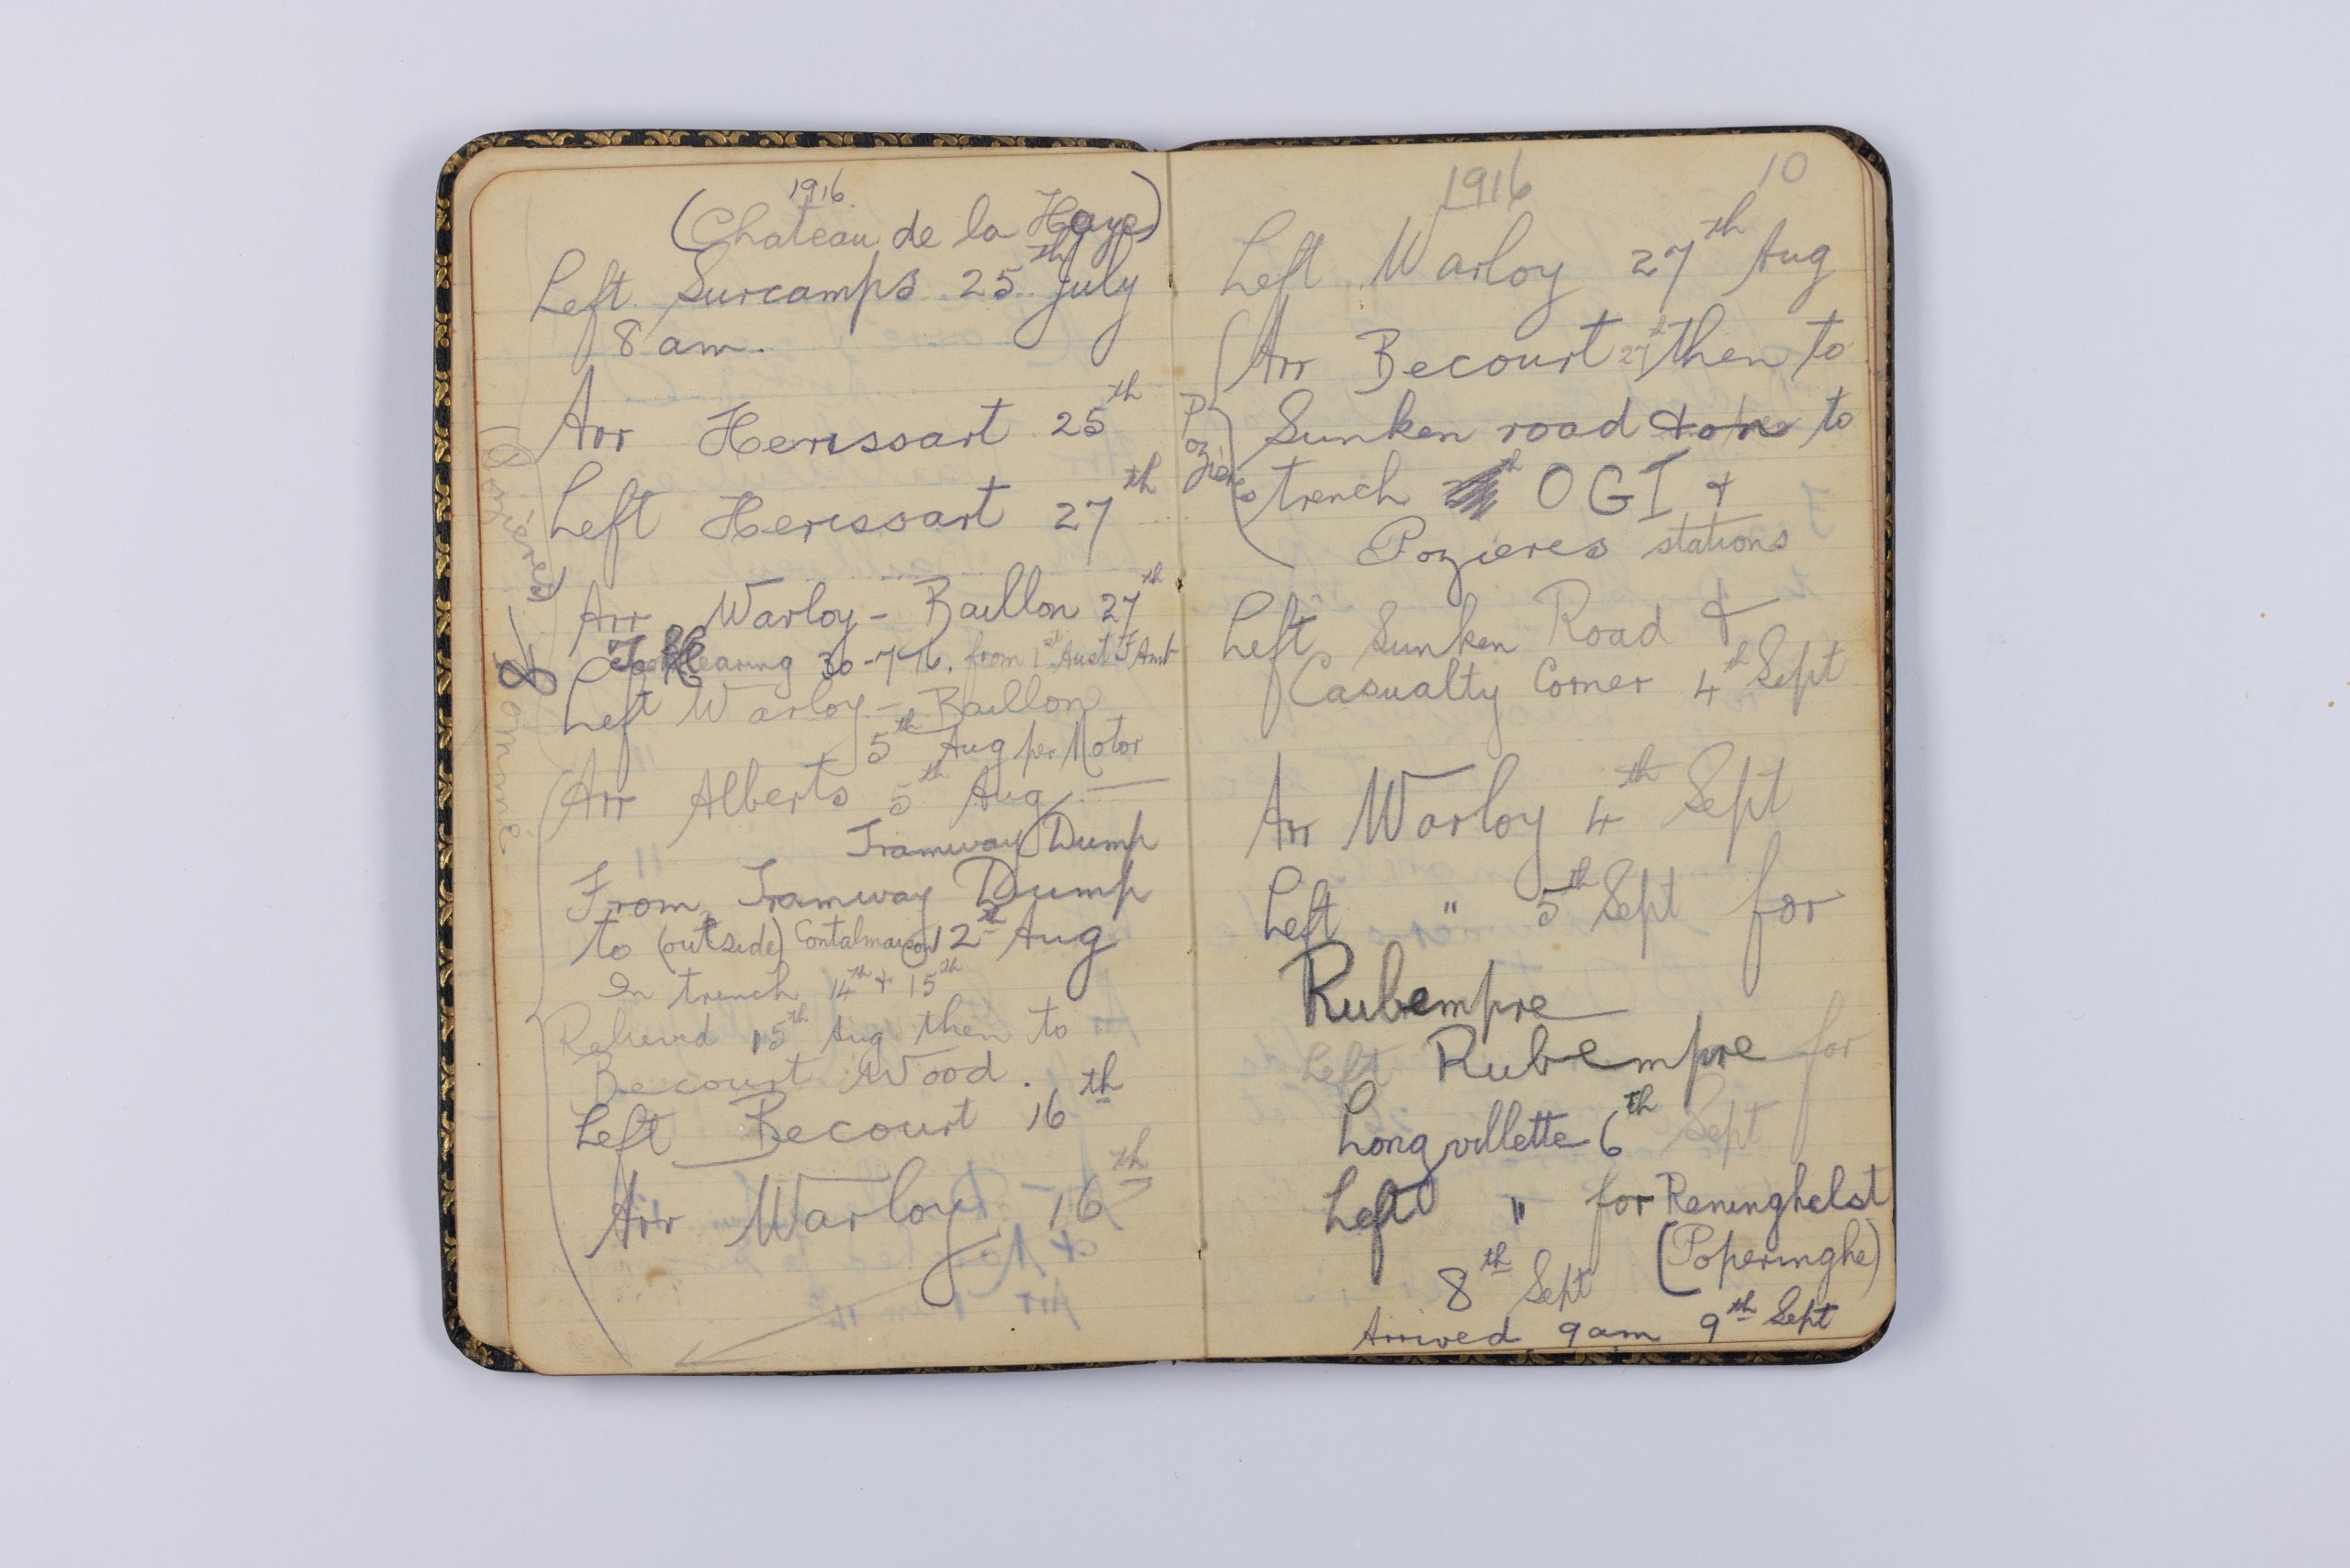 1916.
(Chateau de la Haye)
Left Surcamps 25th July
8 am.
Arr Herissart 25th
Left Herissart 27th
Arr Warloy - Baillon 27th
clearing 30-7-16. from 1st Aust F Amb
Left Warloy - Baillon
5th Aug per Motor
Arr Alberts 5th Aug
Tramway Dump
From Tramway Dump
to (outside) Contalmaison 12th Aug
In trench 14th + 15th
Relieved 15th Aug then to
Becourt Wood.
Left Becourt 16th
Arr Warloy 16th
(Pozieres)
Somme
1916 10
Left Warloy 27th Aug
Arr Becourt 27th then to
Sunken road to
trench OG1 +
Pozieres stations
Pozieres
Left Sunken Road +
Casualty Corner 4th Sept
Arr Warloy 4th Sept
Left " 5th Sept for
Rubempre
Left Rubempre for
Longvillette 6th Sept
Left " for Reninghelst
(Poperinghe)
8th Sept
Arrived 9am 9th Sept